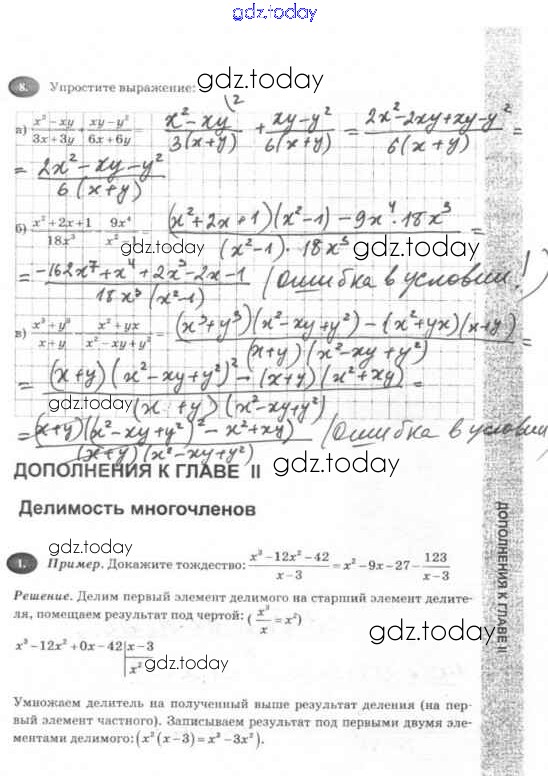 gdz.today
8. Упростите выражение: gdz.today
а) (x² − xy)/(3x + 3y) + (xy − y²)/(6x + 6y) = (x² − xy)/(3(x+y)) \2 + (xy − y²)/(6(x+y)) = (2x² − 2xy + xy − y²)/(6(x+y)) =
= (2x² − xy − y²)/(6(x+y)) gdz.today
б) (x² + 2x + 1)/(18x³) − 9x⁴/(x² − 1) = ((x² + 2x + 1)(x² − 1) − 9x⁴ · 18x³)/((x² − 1) · 18x³) =
gdz.today
= (−162x⁷ + x⁴ + 2x³ − 2x − 1)/(18x³(x² − 1)) (Ошибка в условии!)
gdz.today
в) (x³ + y³)/(x + y) − (x² + yx)/(x² − xy + y²) = ((x³ + y³)(x² − xy + y²) − (x² + yx)(x + y))/((x+y)(x² − xy + y²)) =
= ((x+y)(x² − xy + y²)² − (x+y)(x² + xy))/((x + y)(x² − xy + y²)) =
gdz.today
= ((x+y)(x² − xy + y²)² − x² + xy)/((x+y)(x² − xy + y²)) (Ошибка в условии
ДОПОЛНЕНИЯ К ГЛАВЕ II gdz.today
Делимость многочленов
gdz.today
1. Пример. Докажите тождество: (x³ − 12x² − 42)/(x − 3) = x² − 9x − 27 − 123/(x − 3)
Решение. Делим первый элемент делимого на старший элемент делите-
ля, помещаем результат под чертой: (x³/x = x²)
gdz.today
x³ − 12x² + 0x − 42 | x − 3
x² gdz.today
Умножаем делитель на полученный выше результат деления (на пер-
вый элемент частного). Записываем результат под первыми двумя эле-
ментами делимого: (x²(x − 3) = x³ − 3x²).
gdz.today
ДОПОЛНЕНИЯ К ГЛАВЕ II